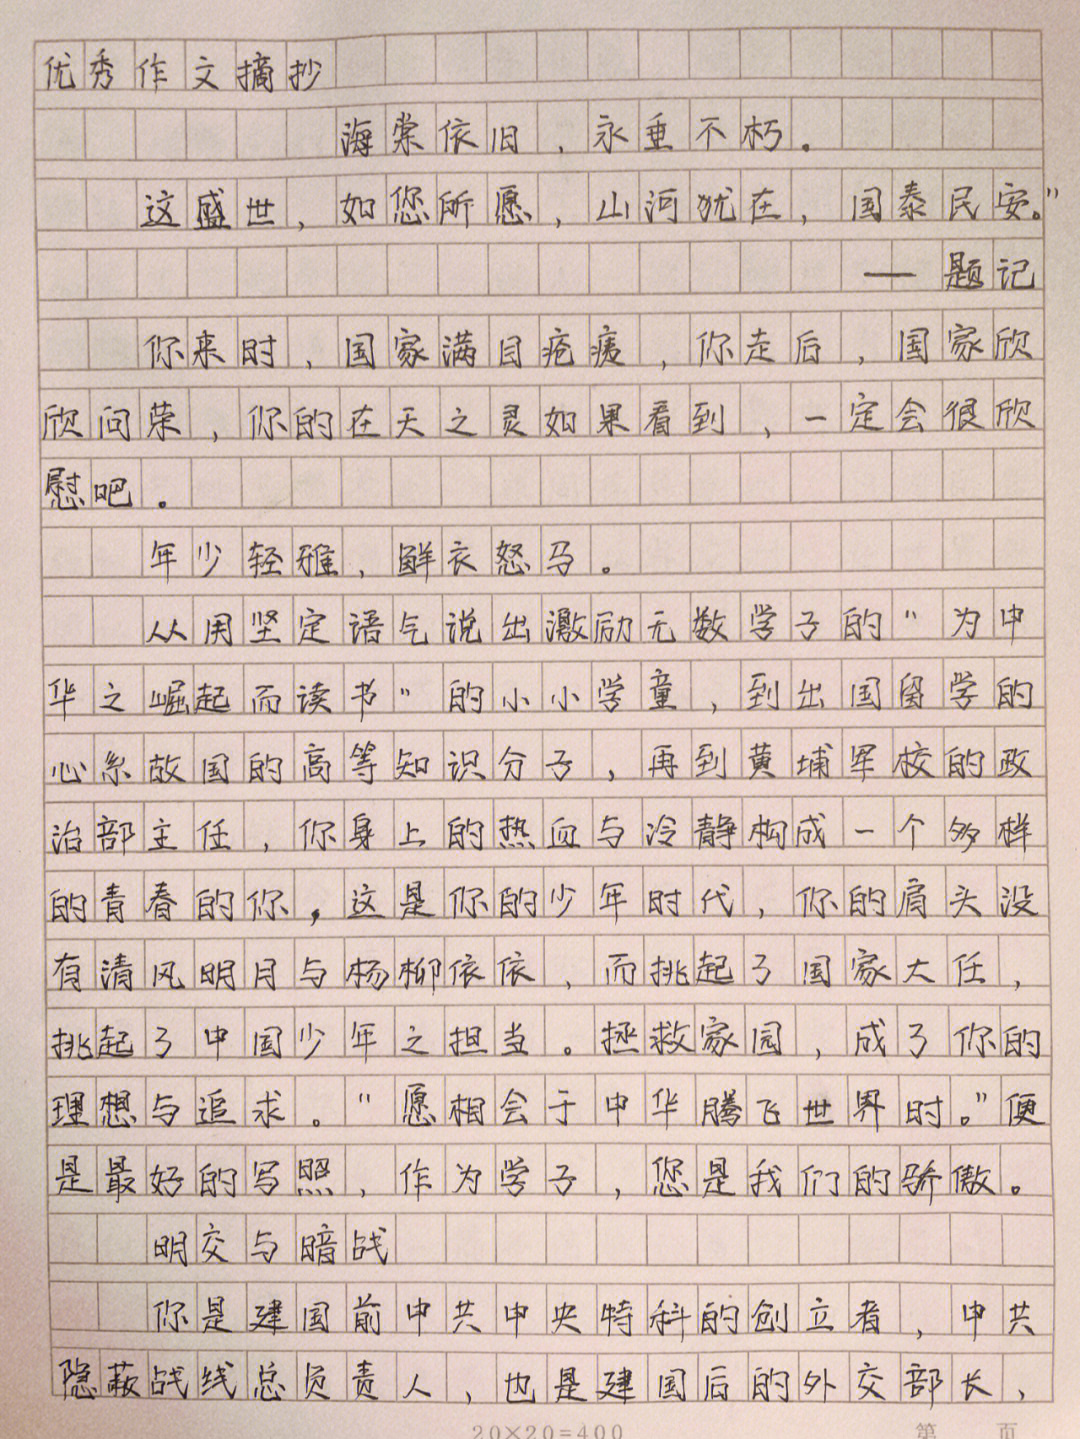 优秀作文摘抄
海棠依旧，永垂不朽。
这盛世，如您所愿，山河犹在，国泰民安。”
——题记
你来时，国家满目疮痍，你走后，国家欣
欣问荣，你的在天之灵如果看到，一定会很欣
慰吧。
年少轻雅，鲜衣怒马。
从用坚定语气说出激励无数学子的“为中
华之崛起而读书”的小小学童，到出国留学的
心系故国的高等知识分子，再到黄埔军校的政
治部主任，你身上的热血与冷静构成一个多样
的青春的你，这是你的少年时代，你的肩头没
有清风明月与杨柳依依，而挑起了国家大任，
挑起了中国少年之担当。拯救家园，成了你的
理想与追求。“愿相会于中华腾飞世界时。”便
是最好的写照，作为学子，您是我们的骄傲。
明交与暗战
你是建国前中共中央特科的创立者，中共
隐蔽战线总负责人，也是建国后的外交部长，
20×20=400
第 页